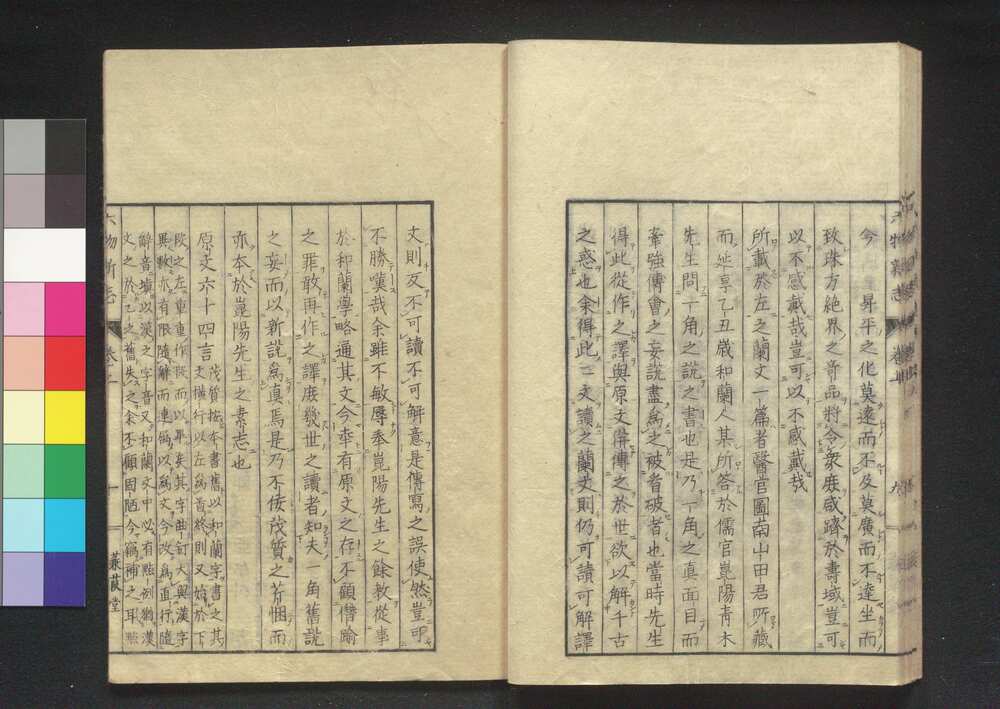 今 昇平之化莫遠而不及莫廣而不達坐而
致殊方絶界之奇品將令衆庶咸躋於壽域豈可
以不感戴哉豈可以不感戴哉
所載於左之蘭文一篇者醫官圖南山田君所藏
而延享乙丑歳和蘭人某所答於儒官崑陽青木
先生問一角之説之書也是乃一角之眞面目而
牽強傅會之妄説盡爲之被者破者也當時先生
得此從作之譯與原文倂傳之於世欲以解千古
之惑也余得此二文讀之蘭文則仍可讀可解譯
文則反不可讀不可解意是傳寫之誤使然豈可
不勝嘆哉余雖不敏辱奉崑陽先生之餘教從事
於和蘭學略通其文今幸有原文之存不顧僭踰
之罪敢再作之譯庶幾世之讀者知夫一角舊説
之妄而以新説爲眞焉是乃不佞茂質之芹悃而
亦本於崑陽先生之素志也
原文六十四言 茂質按本書舊以和蘭字書之其
文横行以左爲首終則又始於下
段之左重重作段而以畢矣其字曲釘大與漢字
異數亦有限隨解而連綴以爲文今改爲直行隨
解音塡以漢之字音又和蘭文中以有㸃例猶漢
文之於乙之舊失之余不顧固陋今爲補之耳㸃
六物新志 卷上 十 蒹葭堂